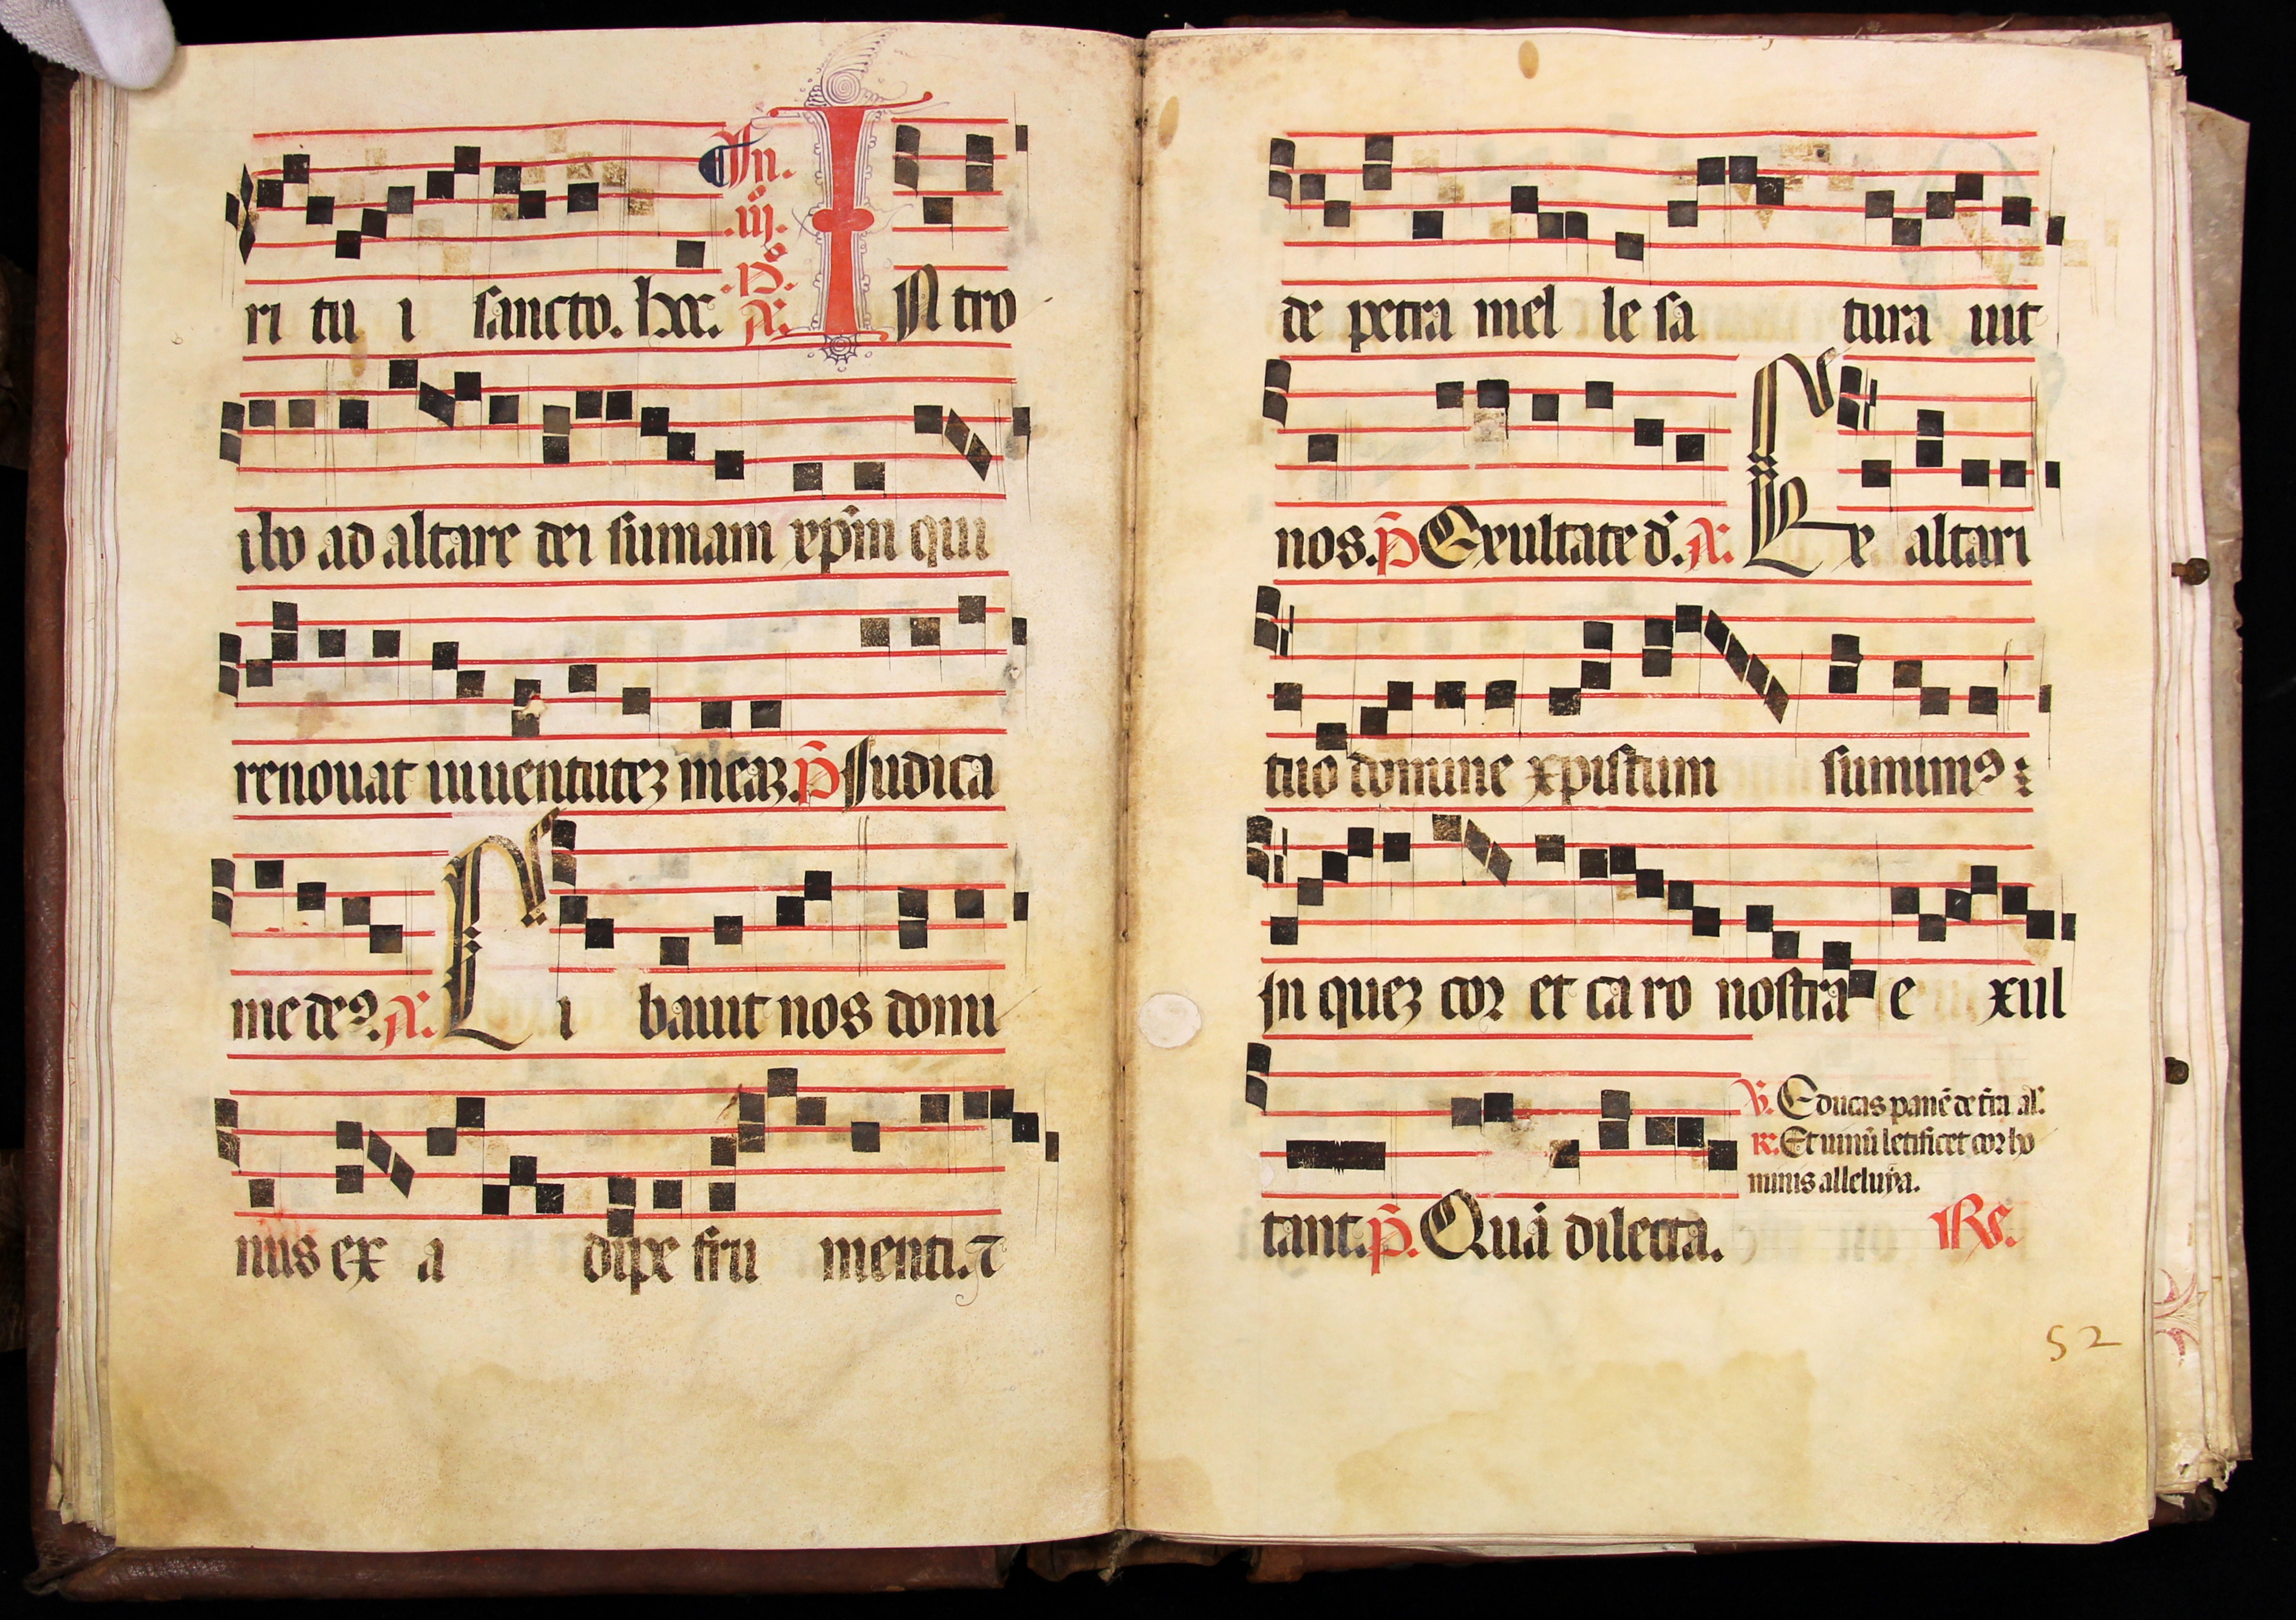 In.
.iij.
.Nº.
A.
ri tu i sancto. hec. IN tro
ibo ad altare dei sumam xp̄m qui
renouat iuuentuteꝫ meaꝫ. p̄ Iudica
me deꝰ. A. Li bauit nos domi
nus ex a dipe fru menti. ⁊
de petra mel le sa tura uit
nos. p̄ Exultate d̄. A. Ex altari
tuo domine xpistum sumimꝰ :
In queꝫ cor et ca ro nostra e xul
tant. p̄. Quā dilecta.
V. Educas panē de t̄ra al̄.
R. Et uinū letificet cor ho
minis alleluya.
Rx.
52